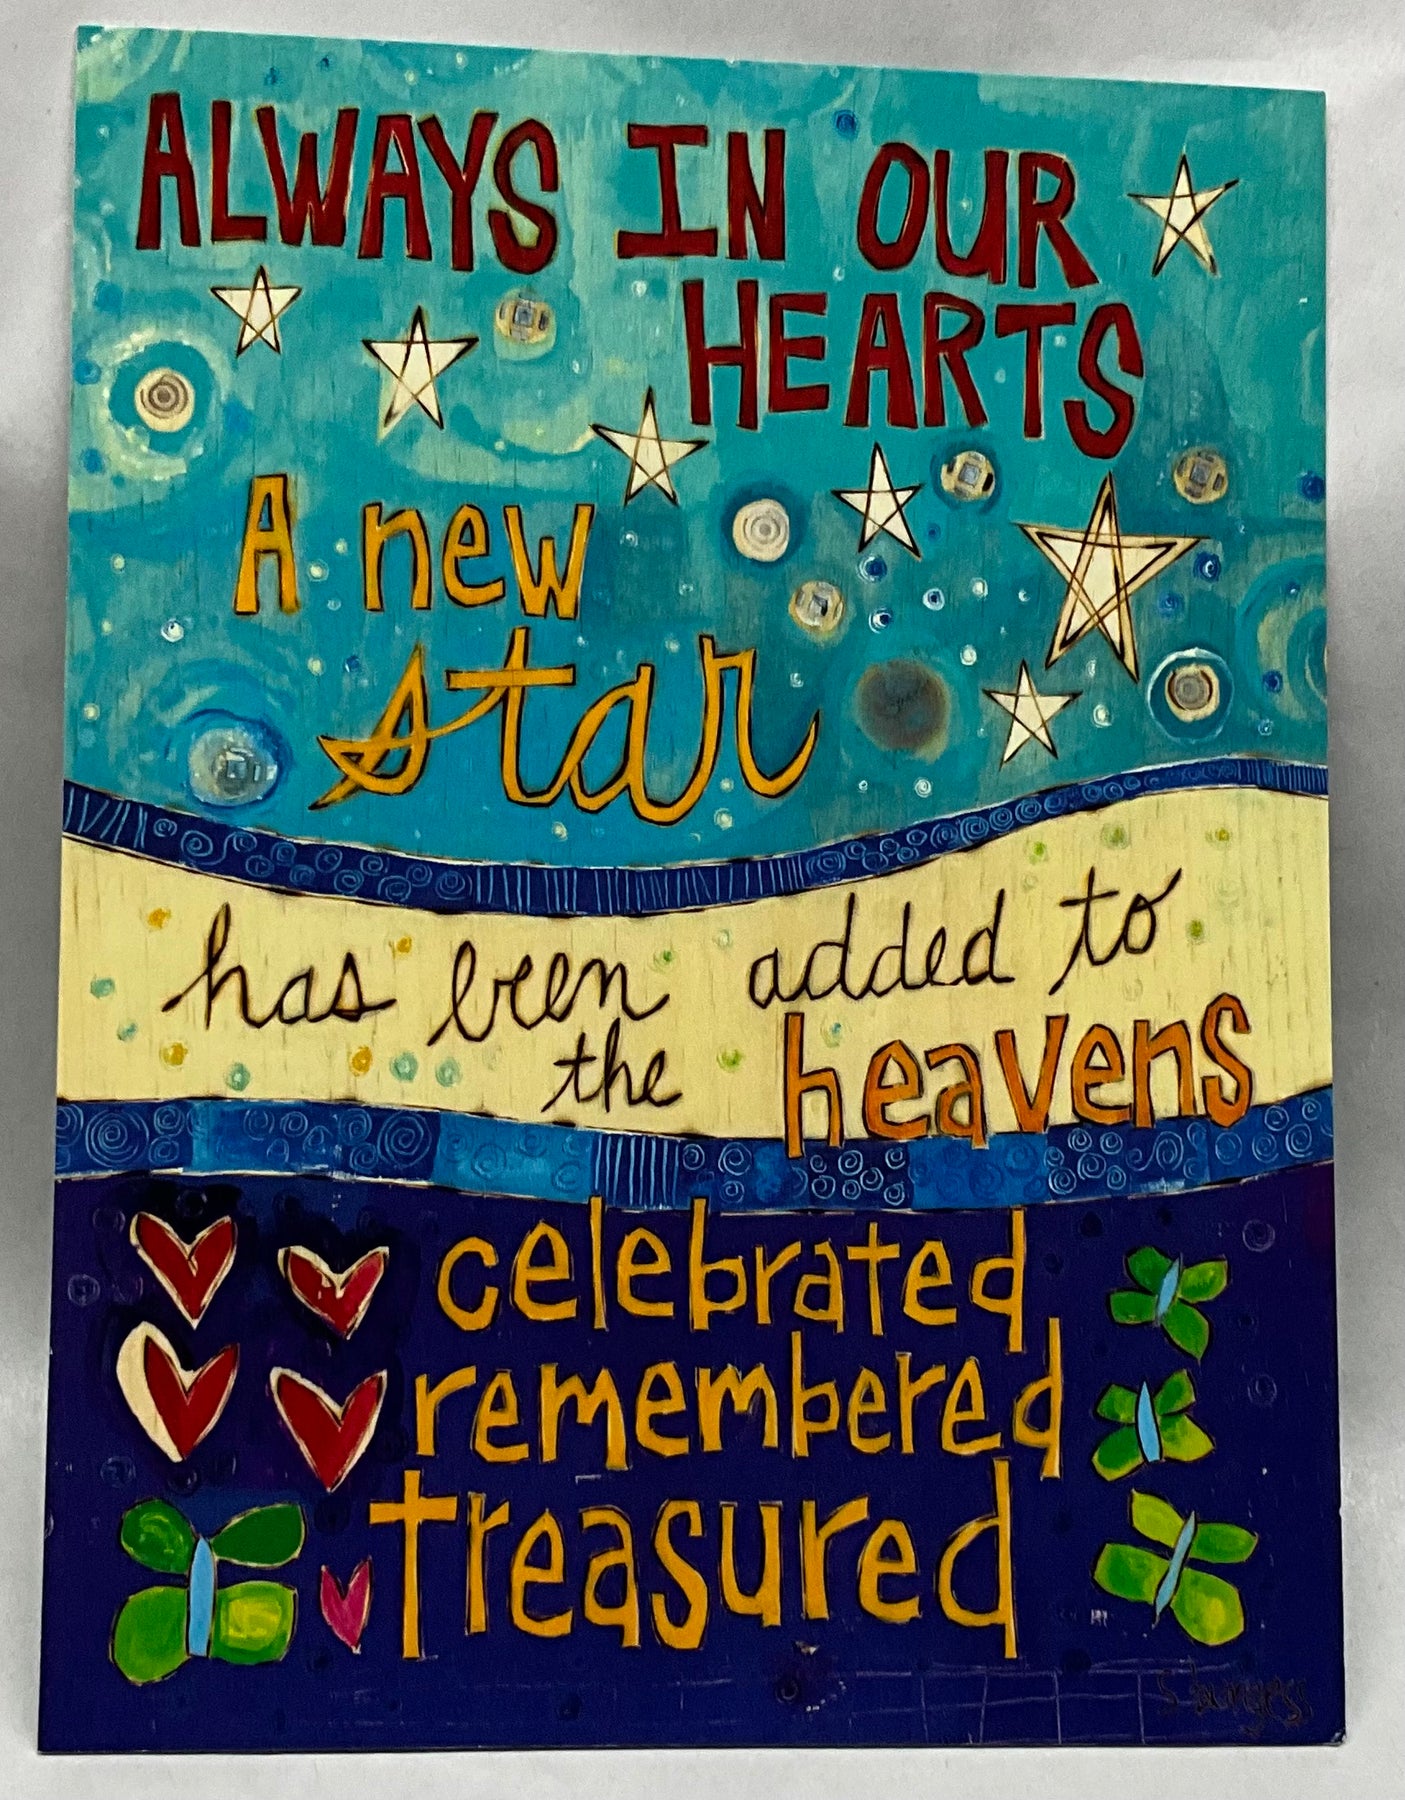 ALWAYS IN OUR
HEARTS
A new
star
has been added to
the heavens
celebrated
remembered
treasured
S. burgess